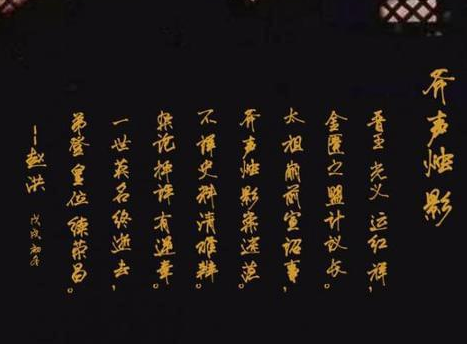 斧声烛影
晋王光义运红祥，
金匮之盟计议长。
太祖崩前宣诏事，
斧声烛影案迷茫。
不详史料清难辨。
论择有章。
一世英名终逝去，
弟登皇位续荣昌。
—赵洪 戊戌初冬